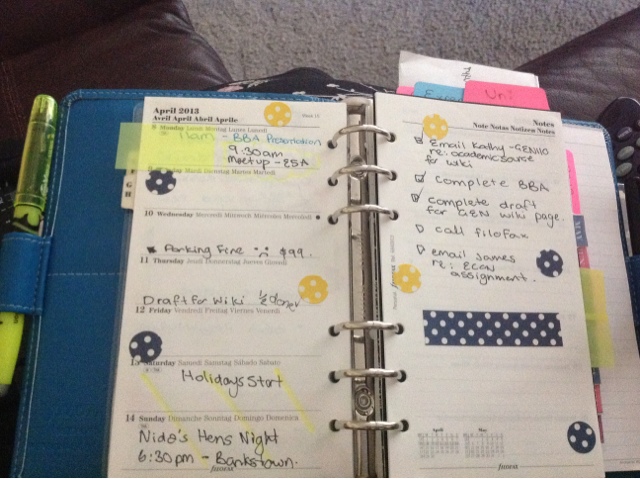 April 2013
Avril April Abril Aprile
Week 15
8 Monday Lundi Montag Lunes Lunedì
11am - BBA Presentation
9:30am
Meetup - E5A
Mardi Dienstag Martes Martedì
10 Wednesday Mercredi Mittwoch Miércoles Mercoledì
Parking Fine $99.
11 Thursday Jeudi Donnerstag Jueves Giovedì
Draft for Wiki 1/2 done
12 Friday Vendredi Freitag Viernes Venerdì
13 Saturday Samedi Samstag Sábado Sabato
Holidays Start
14 Sunday Dimanche Sonntag Domingo Domenica
Nida's Hens Night
6:30pm - Bankstown.
filofax
Uni
Notes
Note Notas Notizen Notes
Email Kathy - GEN110
re: academic source
for wiki
Complete BBA
complete draft
for GEN wiki page.
call filofax
email James
re: ECON
assignment.
filofax
April
May
filofax